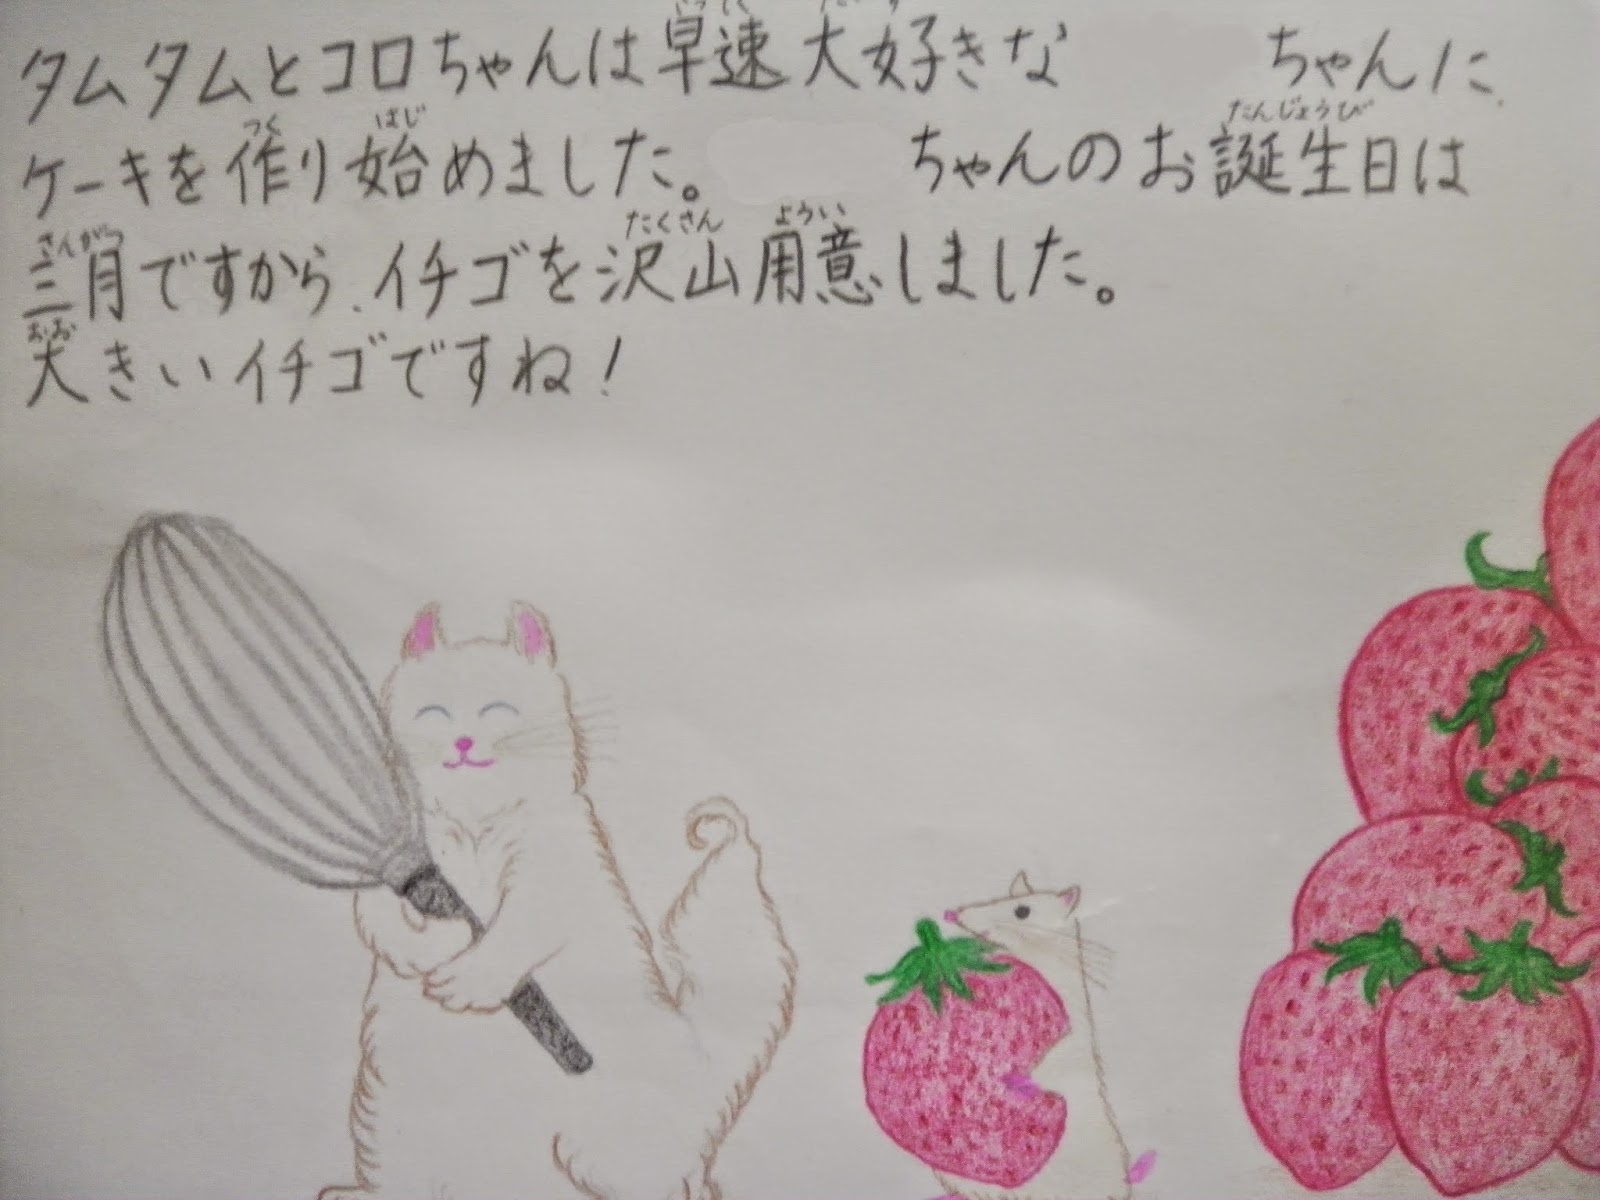 タムタムとコロちゃんは早速大好きな ちゃんに
ケーキを作り始めました。 ちゃんのお誕生日は
三月ですから、イチゴを沢山用意しました。
大きいイチゴですね！